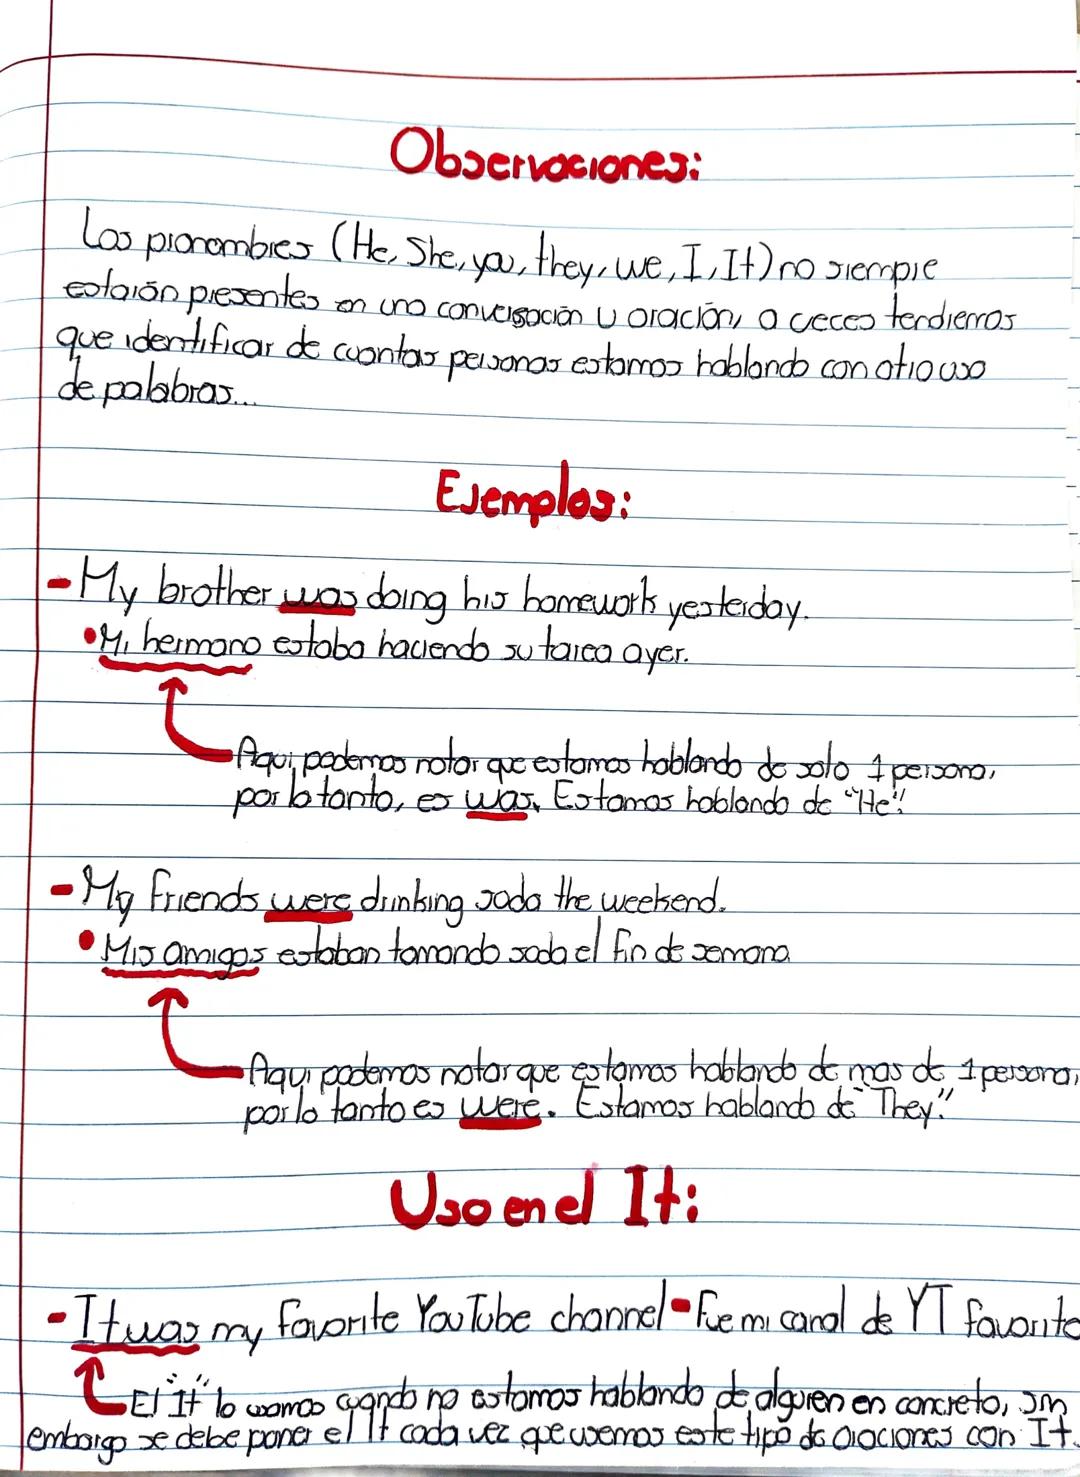 Observaciones:
Los pronombres (He, She, you, they, we, I, It) no siempre
estarán presentes en una conversación u oración, a veces tendremos
que identificar de cuantas personas estamos hablando con otro uso
de palabras...
Ejemplos:
- My brother was doing his homework yesterday.
• Mi hermano estaba haciendo su tarea ayer.
Aqui, podemos notar que estamos hablando de solo 1 persona,
por lo tanto, es was. Estamos hablando de "He".
- My friends were drinking soda the weekend.
• Mis amigos estaban tomando soda el fin de semana.
Aqui podemos notar que estamos hablando de mas de 1 persona,
por lo tanto es were. Estamos hablando de "They".
Uso en el It:
- It was my favorite YouTube channel - Fue mi canal de YT favorito
El "It" lo usamos cuando no estamos hablando de alguien en concreto, sin
embargo se debe poner el It cada vez que usemos este tipo de oraciones con It.